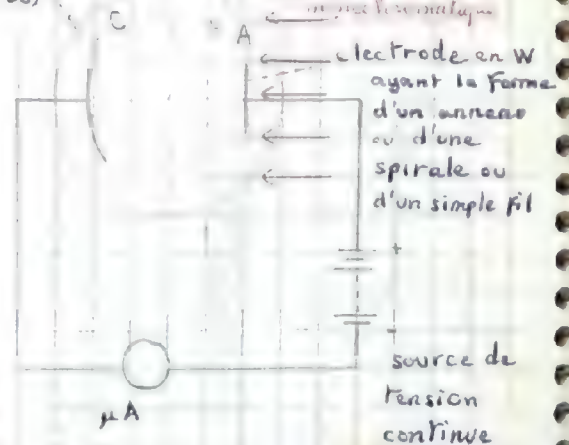 C
A
électrode en W
ayant la forme
d'un anneau
ou d'une
spirale ou
d'un simple fil
+
-
source de
tension
continue
µA